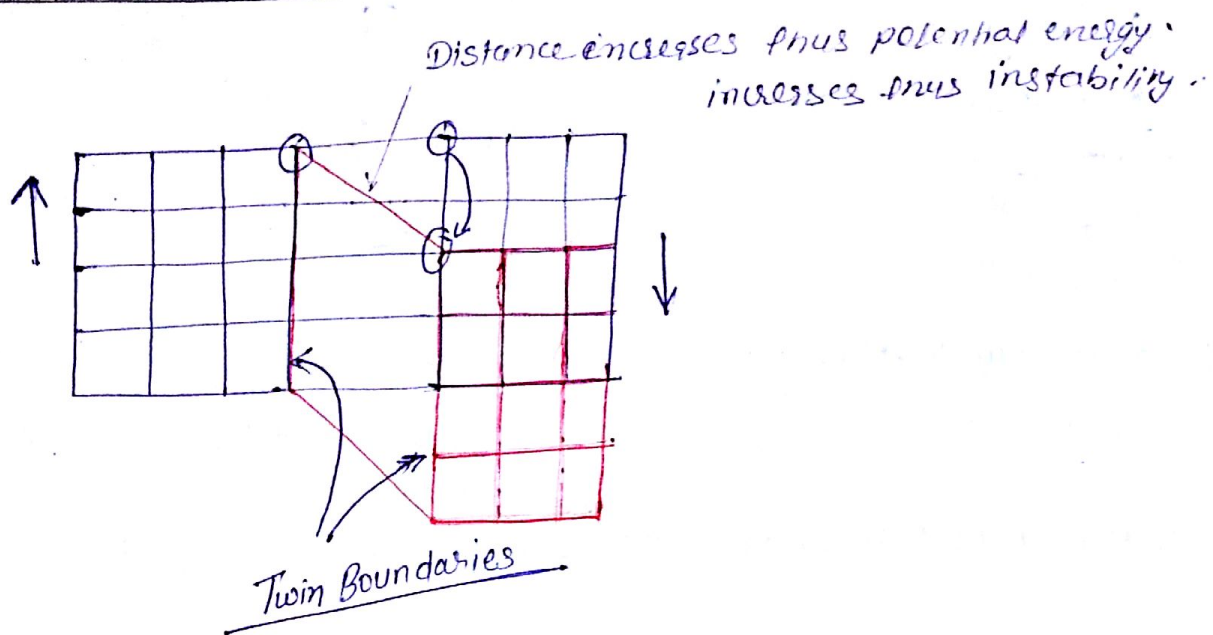 Distance increases thus potential energy.
increases thus instability.
Twin Boundaries